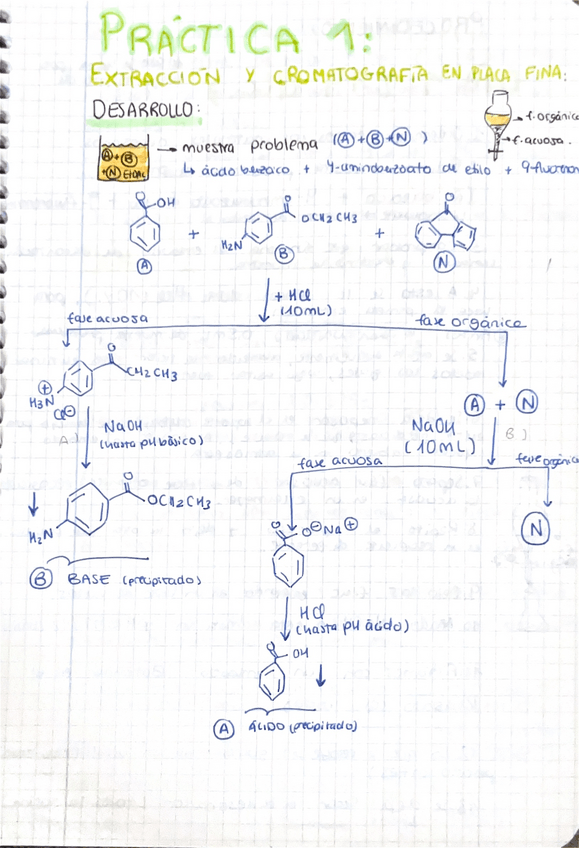 PRÁCTICA 1:
EXTRACCIÓN Y CROMATOGRAFÍA EN PLACA FINA:
DESARROLLO:
A + B
+ N EtOAc
→ muestra problema (A + B + N)
f. orgánica
f. acuosa.
↳ ácido benzoico + 4-aminobenzoato de etilo + 9-fluorenon
O
OH
A
+
O
OCH2CH3
H2N
B
+
O
N
+ HCl
(10mL)
fase acuosa
fase orgánica
O
CH2CH3
⊕
H3N
Cl⊖
A + N
NaOH
(hasta pH básico)
A)
NaOH
(10mL)
B)
fase acuosa
fase orgánica
O
OCH2CH3
H2N
B BASE (precipitado)
O
O⊖Na⊕
N
HCl
(hasta pH ácido)
O
OH
A ÁCIDO (precipitado)